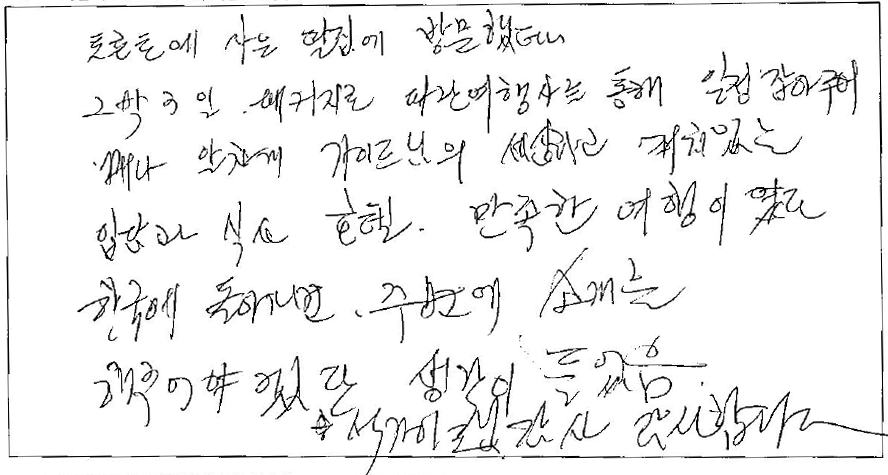 토론토에 사는 딸집에 방문했더니
2박 3일 패키지로 파란여행사를 통해 일정 잡아주어
꽤나 알차게 가이드님의 세심하고 재치있는
입담과 식사 호텔. 만족한 여행이 였다
한국에 돌아가면. 주변에 소개를
해주어야 겠단 생각이 들었음.
감사합니다